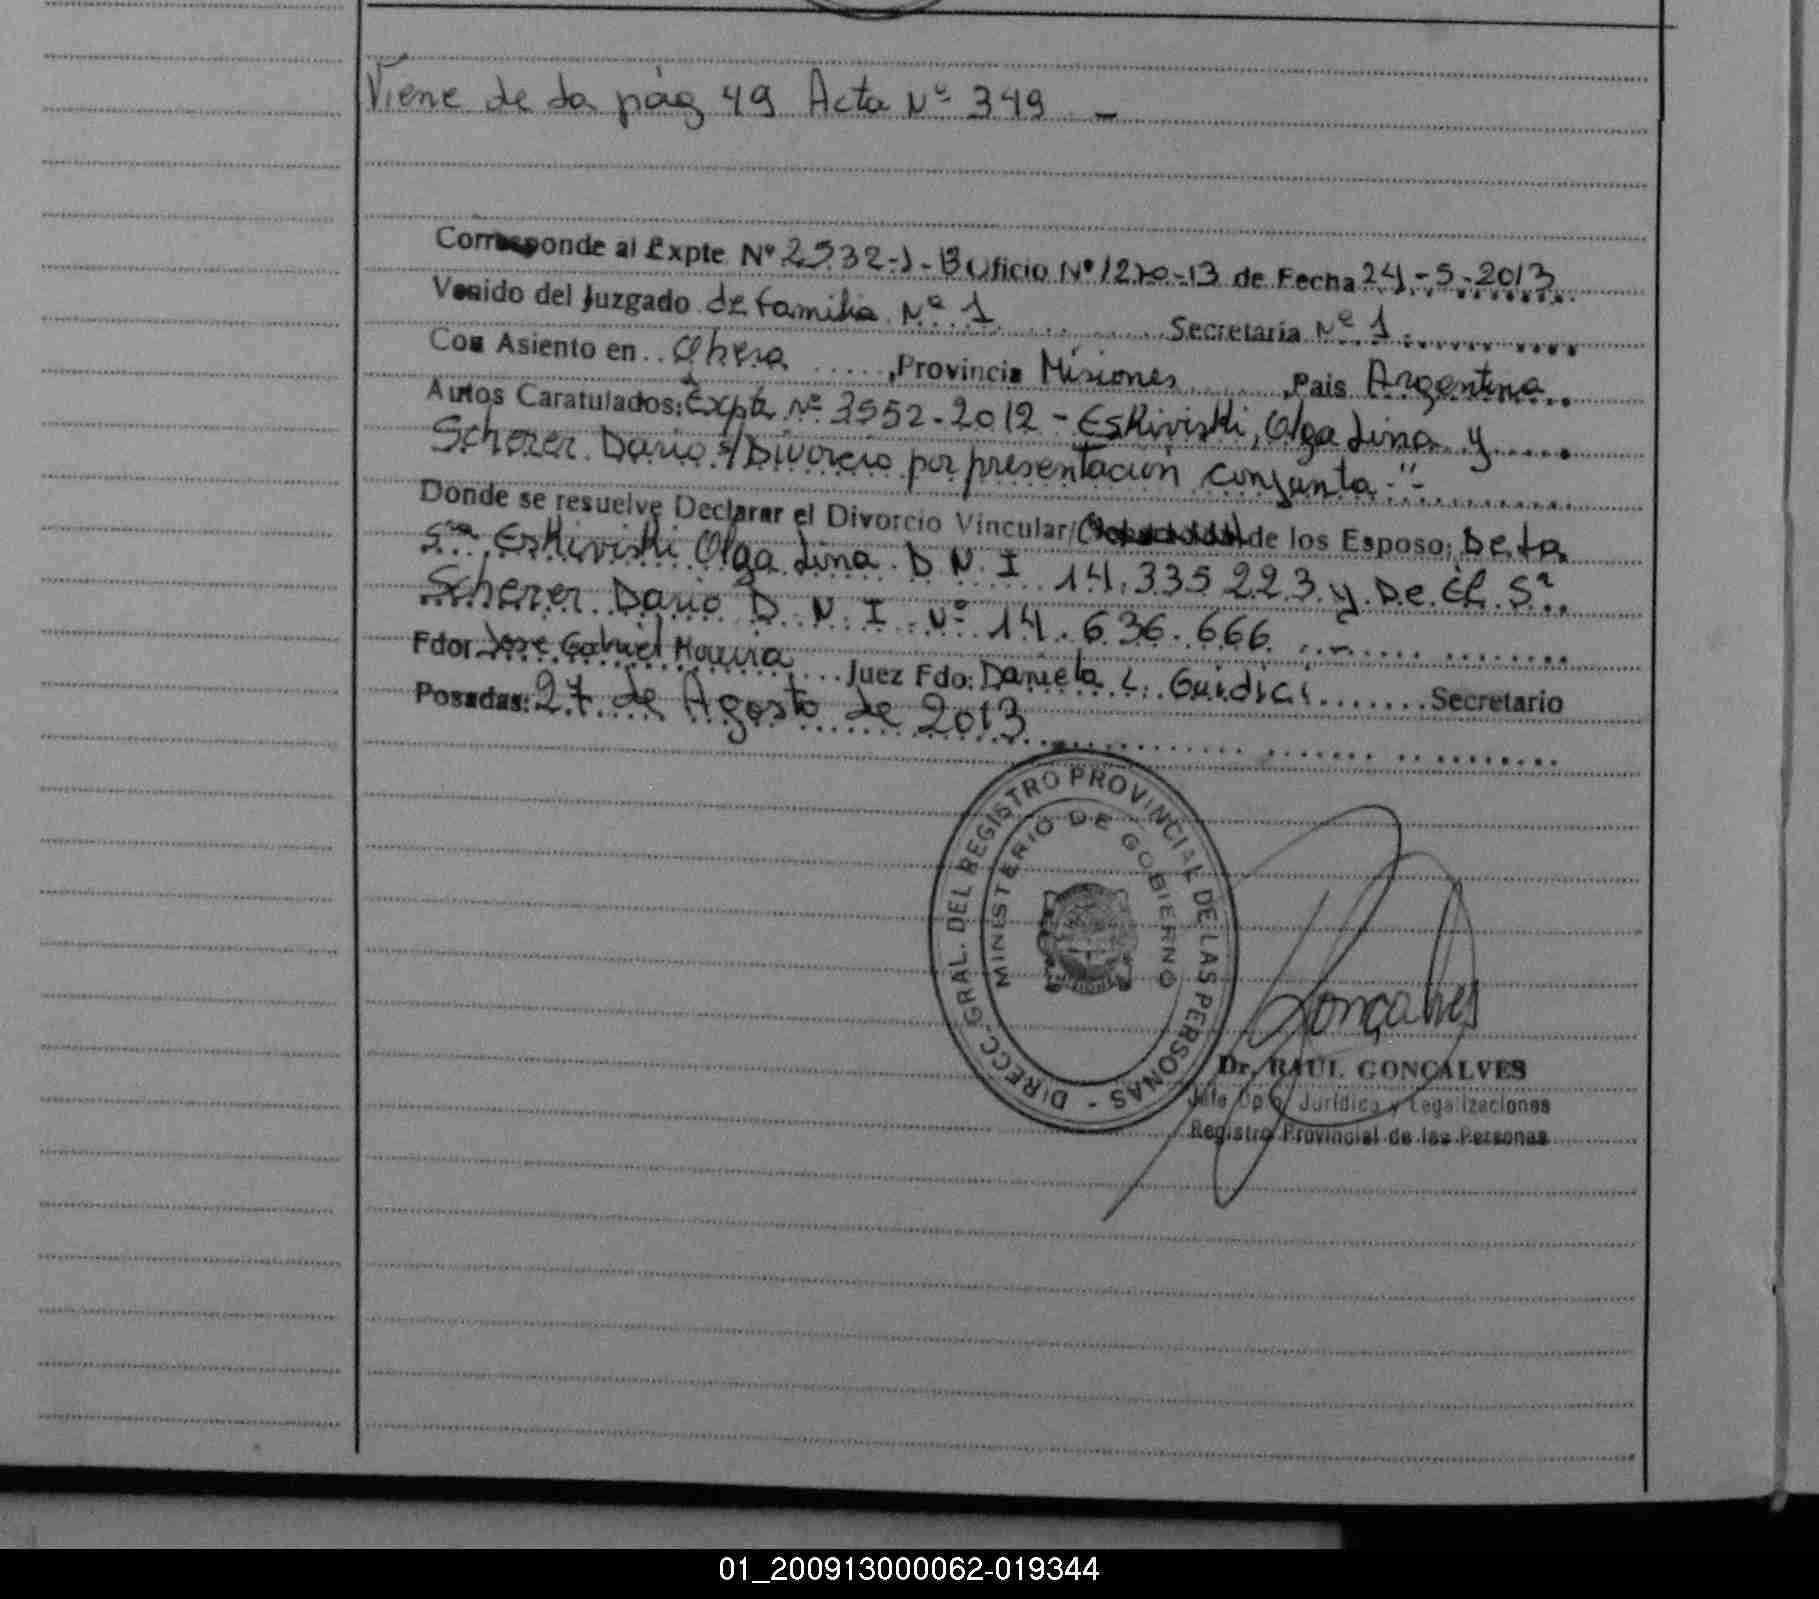 Viene de la pág 49 Acta Nº 349 . _
Corresponde al Expte Nº 2532-J-B Oficio Nº 1270-13 de Fecha 24-5-2013
Venido del Juzgado de familia Nº 1 Secretaría Nº 1
Con Asiento en Obera, Provincia Misiones, Pais Argentina
Autos Caratulados: Expte Nº 3552-2012 - Eskiviski, Olga Lina y
Scherer Dario s/Divorcio por presentacion conjunta"-
Donde se resuelve Declarar el Divorcio Vincular/ de los Esposo: De La
Sra. Eskiviski Olga Lina D.N.I 14.335.223 y De El Sr.
Scherer Dario D.N.I. Nº 14.636.666 . -
Fdor Jose Gabriel Juez Fdo: Daniela L. Guidici Secretario
Posadas: 27 de Agosto de 2013
DIRECC. GRAL. DEL REGISTRO PROVINCIAL DE LAS PERSONAS -
MINISTERIO DE GOBIERNO
Gonçalves
Dr. RAUL GONÇALVES
Jefe Dpto. Jurídico y Legalizaciones
Registro Provincial de las Personas
01_200913000062-019344